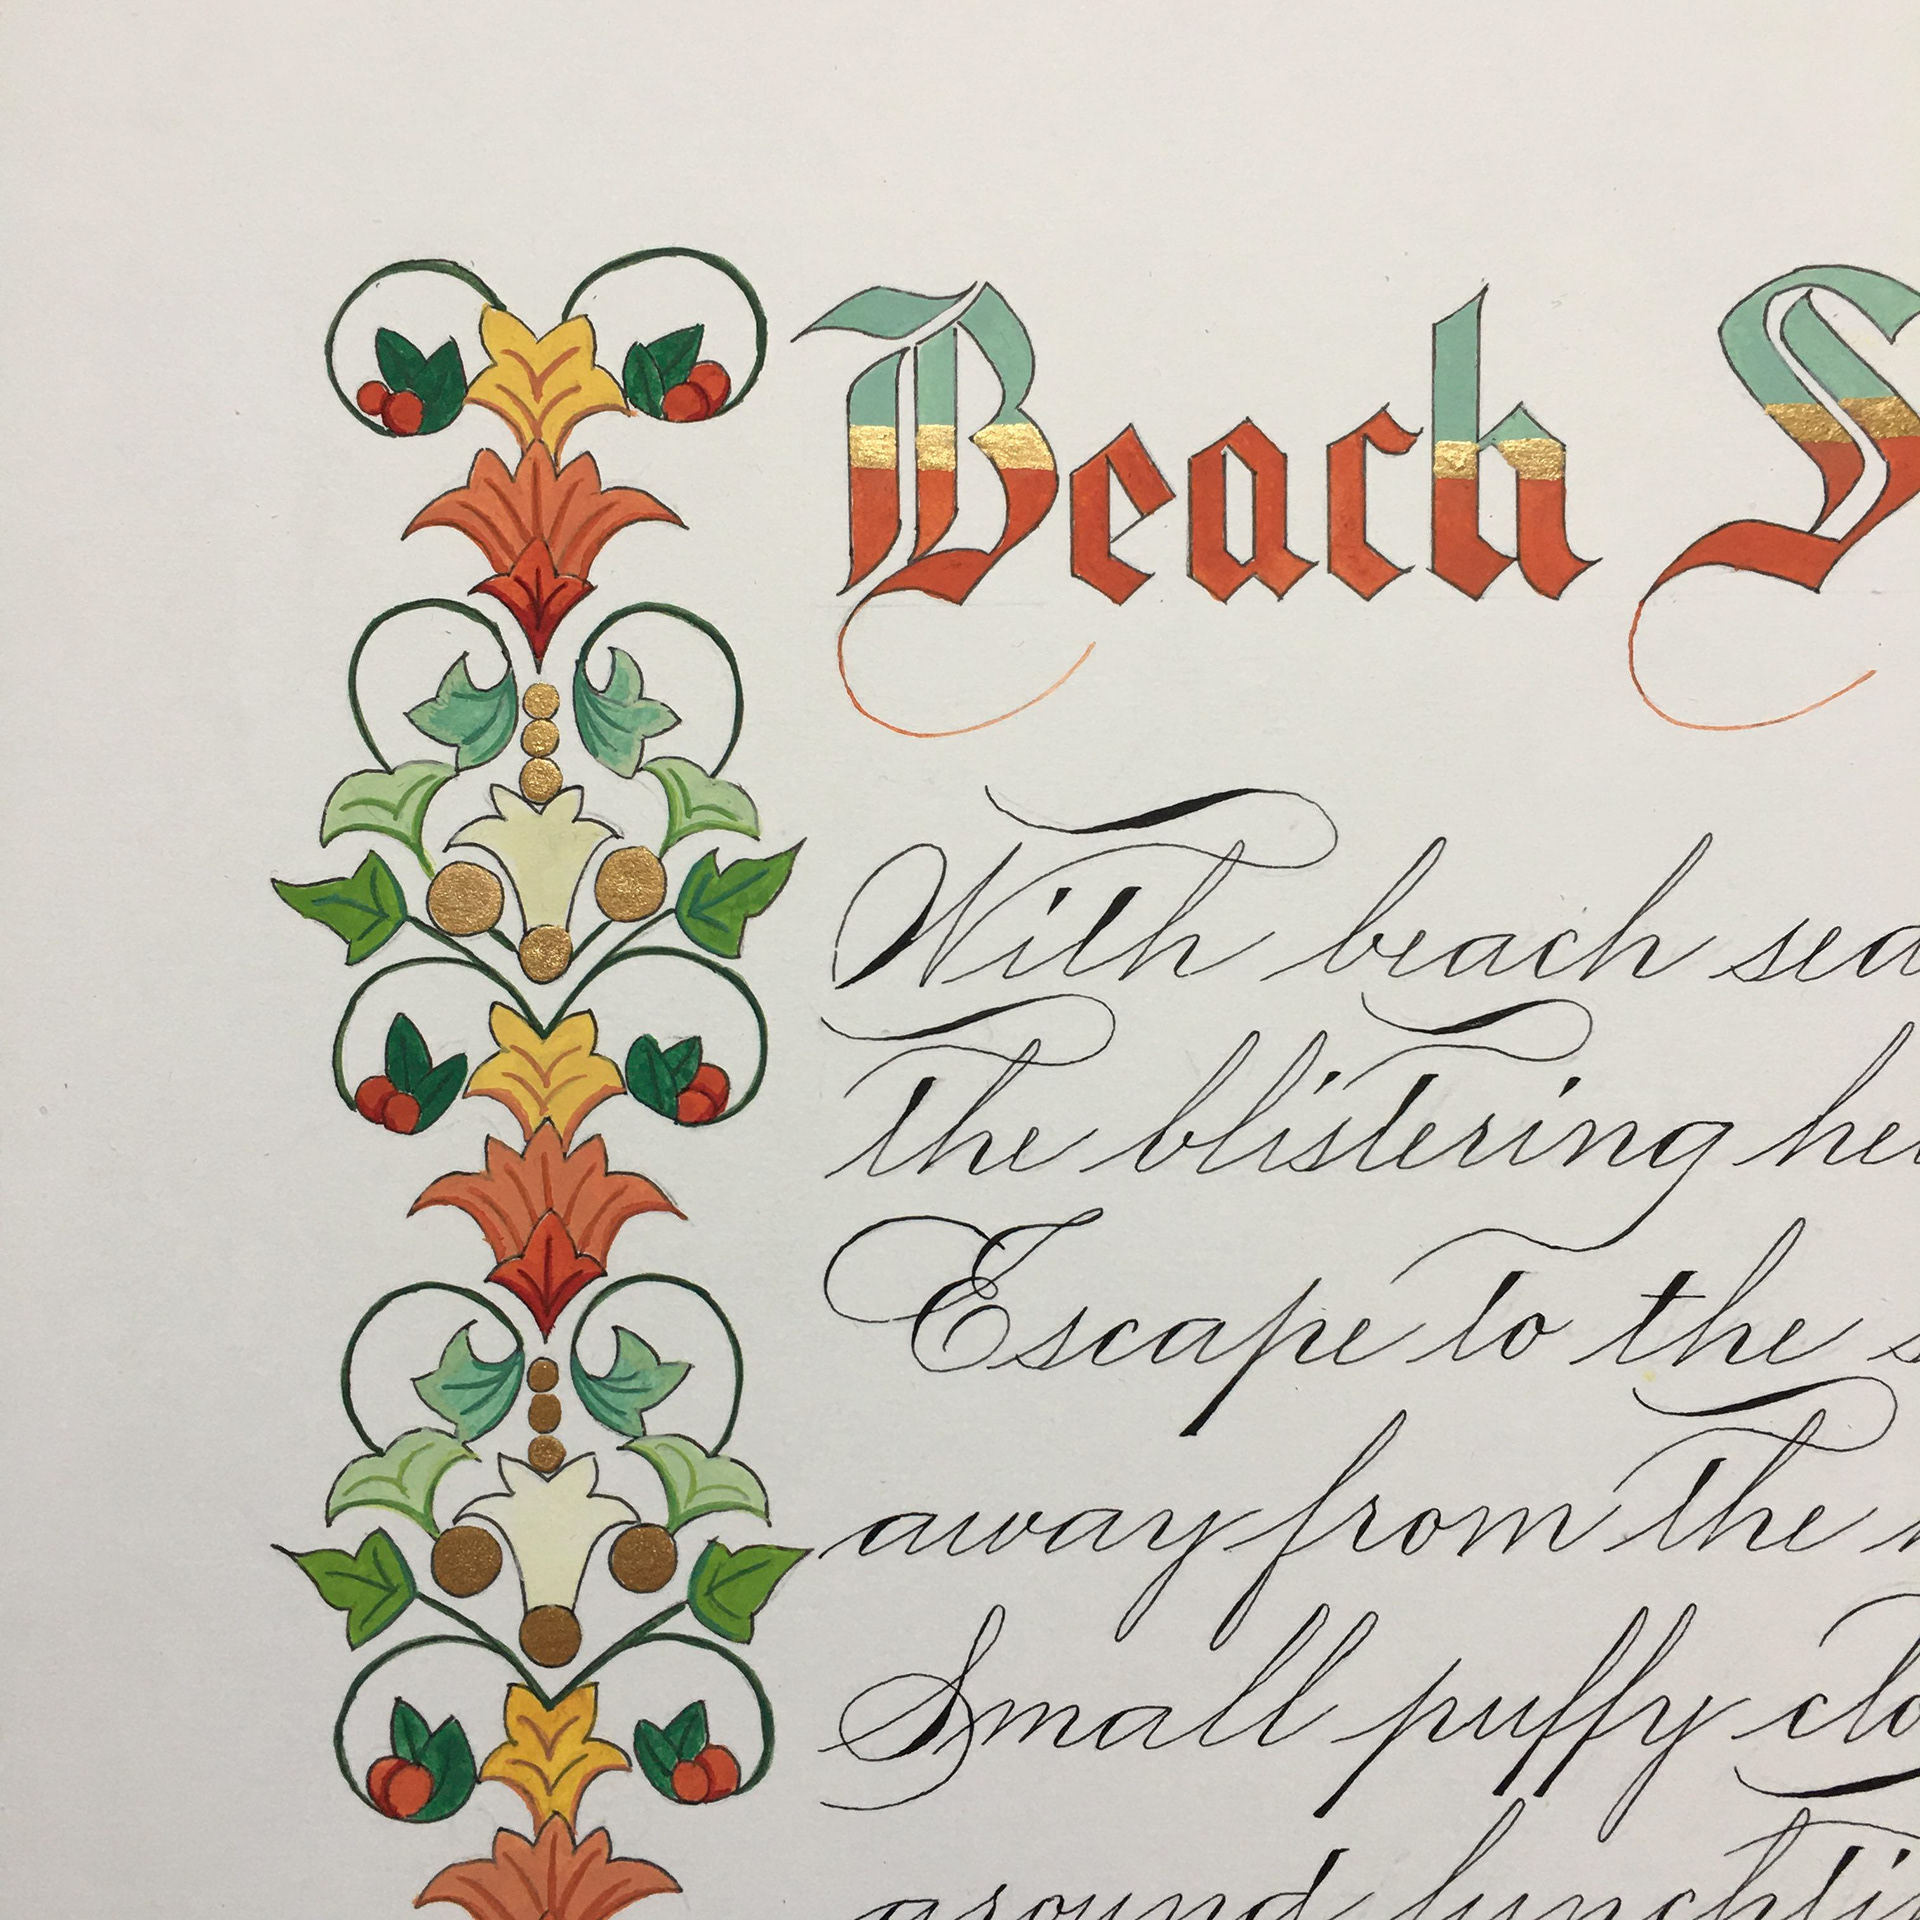 Beach S
With beach sea
the blistering he
Escape to the s
away from the
Small puffy clo
around lunchti